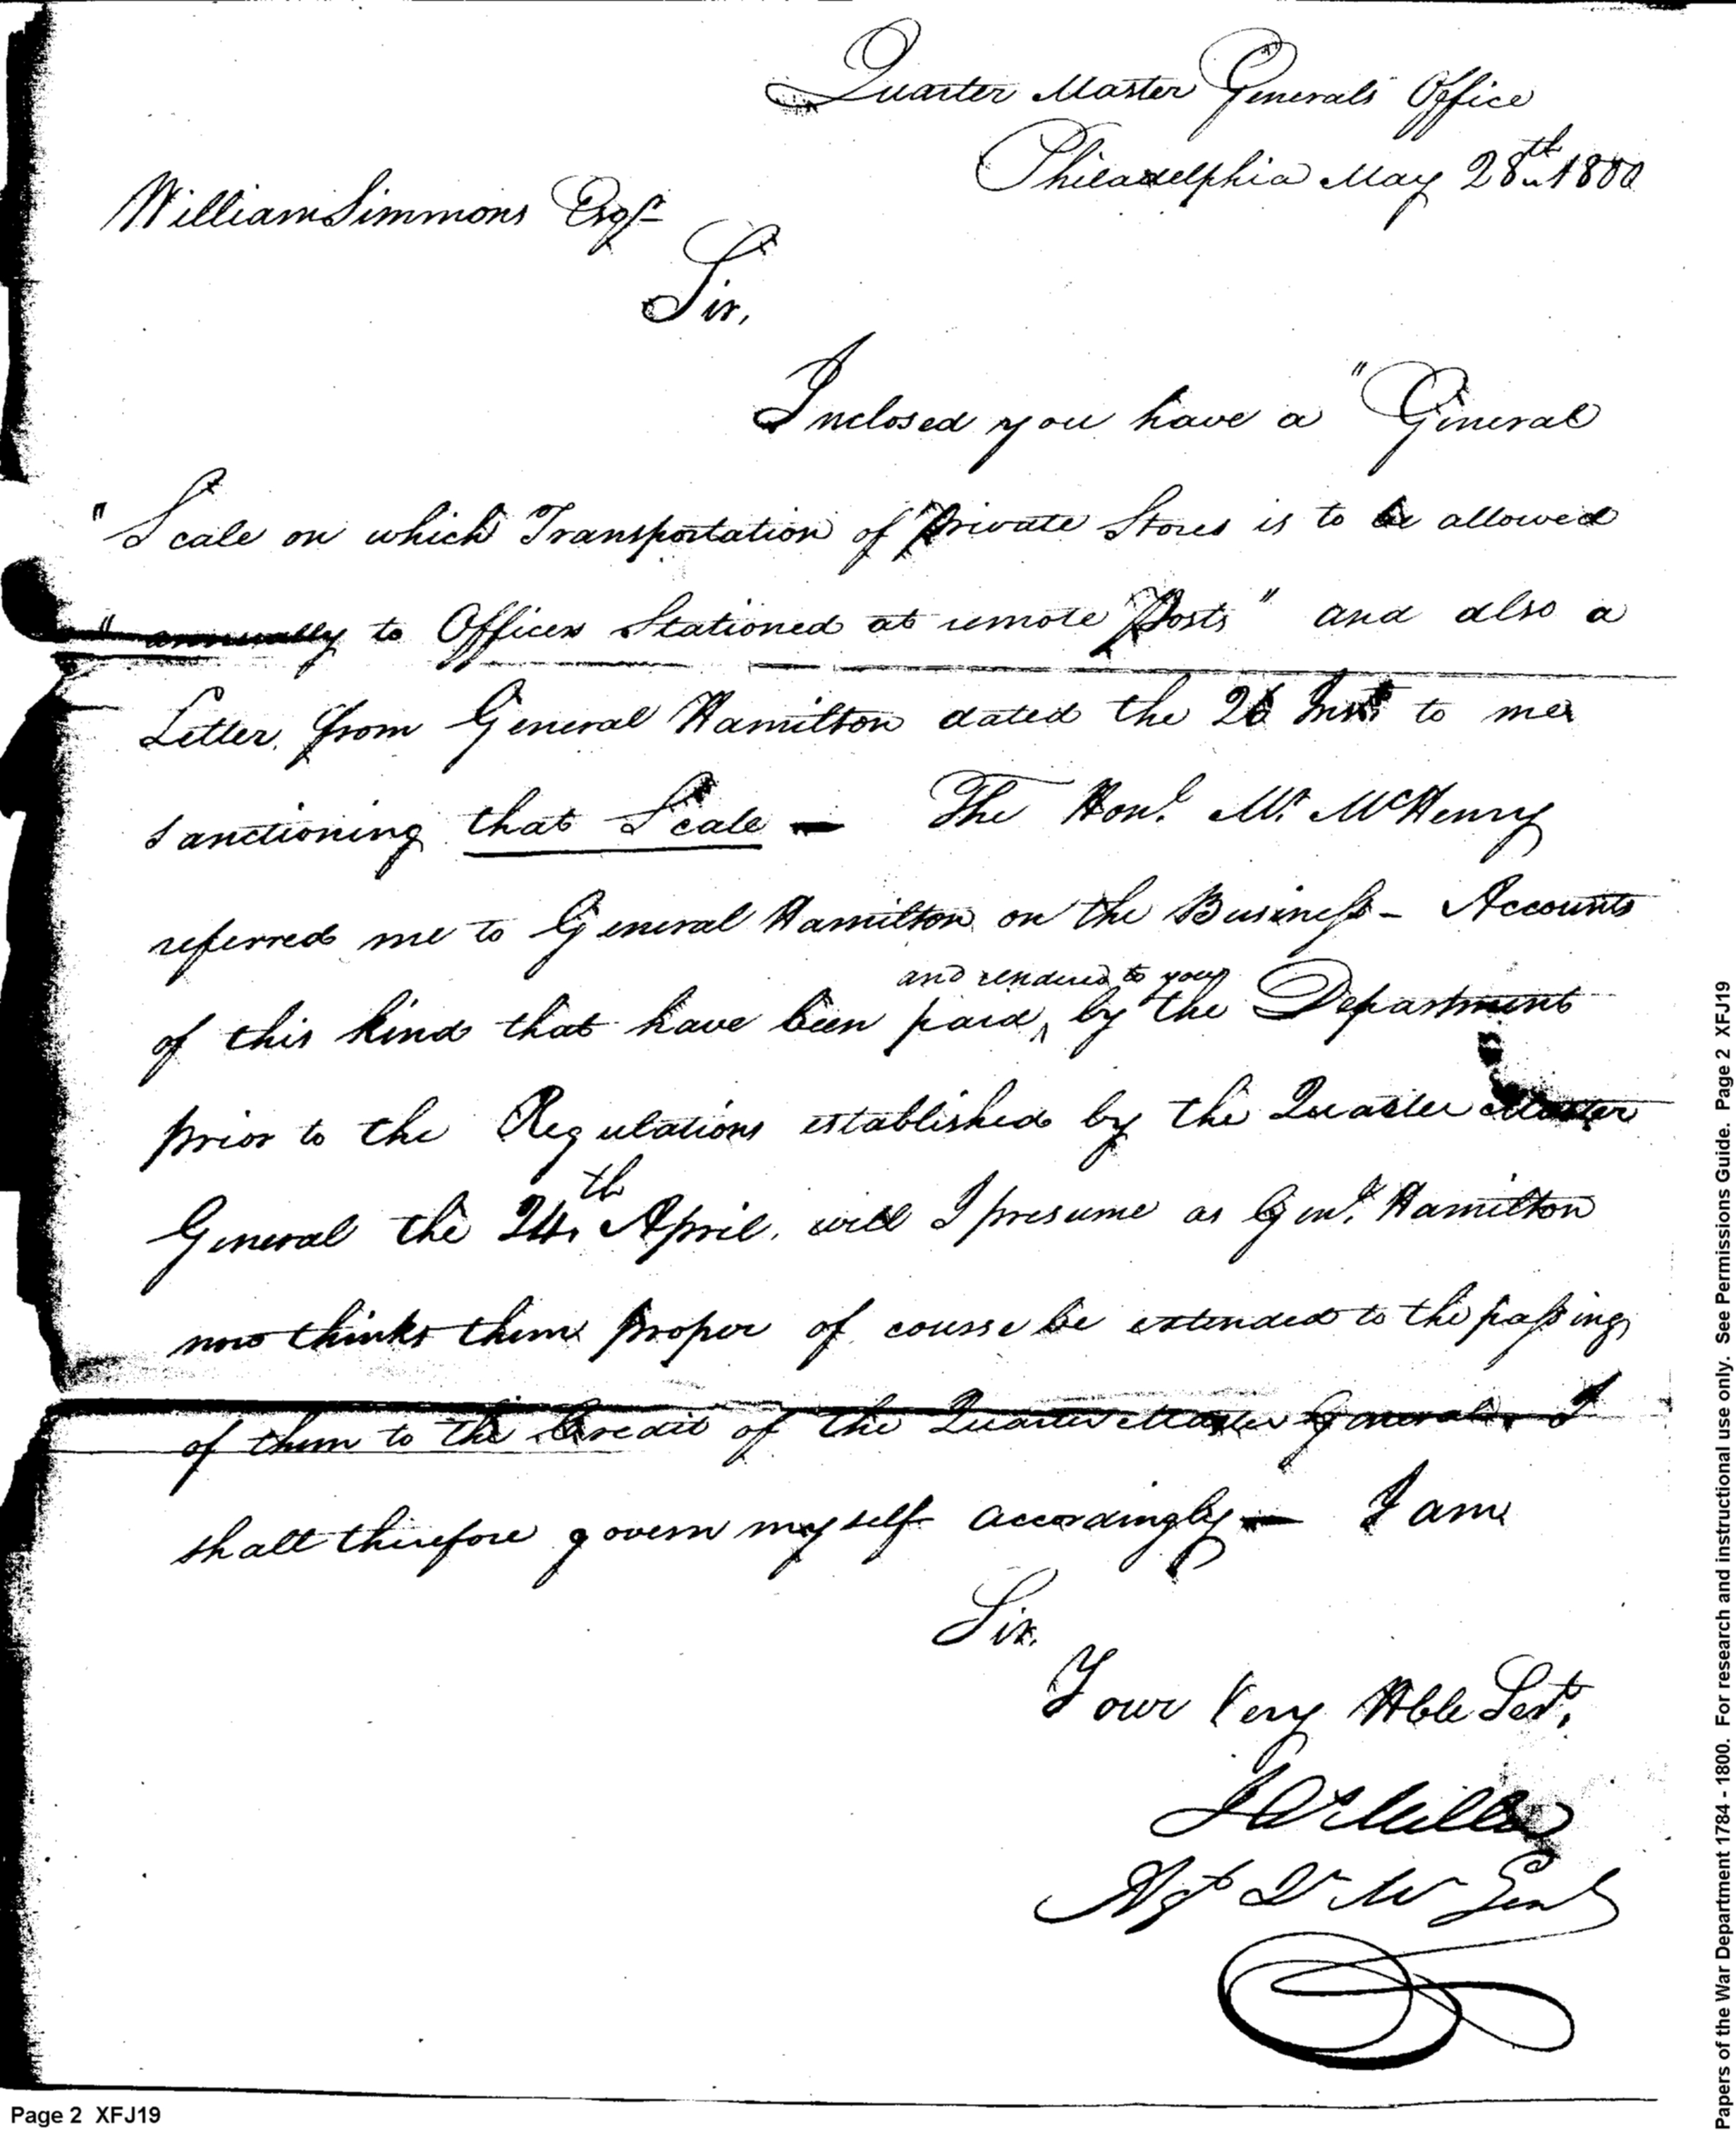 Quarter Master Generals Office
Philadelphia May 28th 1800
William Simmons Esqr
Sir,
Inclosed you have a "General
"Scale on which Transportation of Private Stores is to be allowed
"annually to Officers Stationed at remote Posts" and also a
Letter from General Hamilton dated the 26 Inst to me
sanctioning that Scale — The Honl. Mr. McHenry
referred me to General Hamilton on the Business - Accounts
and rendered to you
of this kind that have been paid, by the Department
prior to the Regulations established by the Quarter Master
General the 24th April, will I presume as Genl. Hamilton
now thinks them proper of course be extended to the passing
of them to the Credit of the Quarter Master General. I
shall therefore govern myself accordingly — I am
Sir.
Your Very Hble Sert.
J Miller
Agt Qr Mr Genl
Page 2 XFJ19
Papers of the War Department 1784 - 1800. For research and instructional use only. See Permissions Guide. Page 2 XFJ19